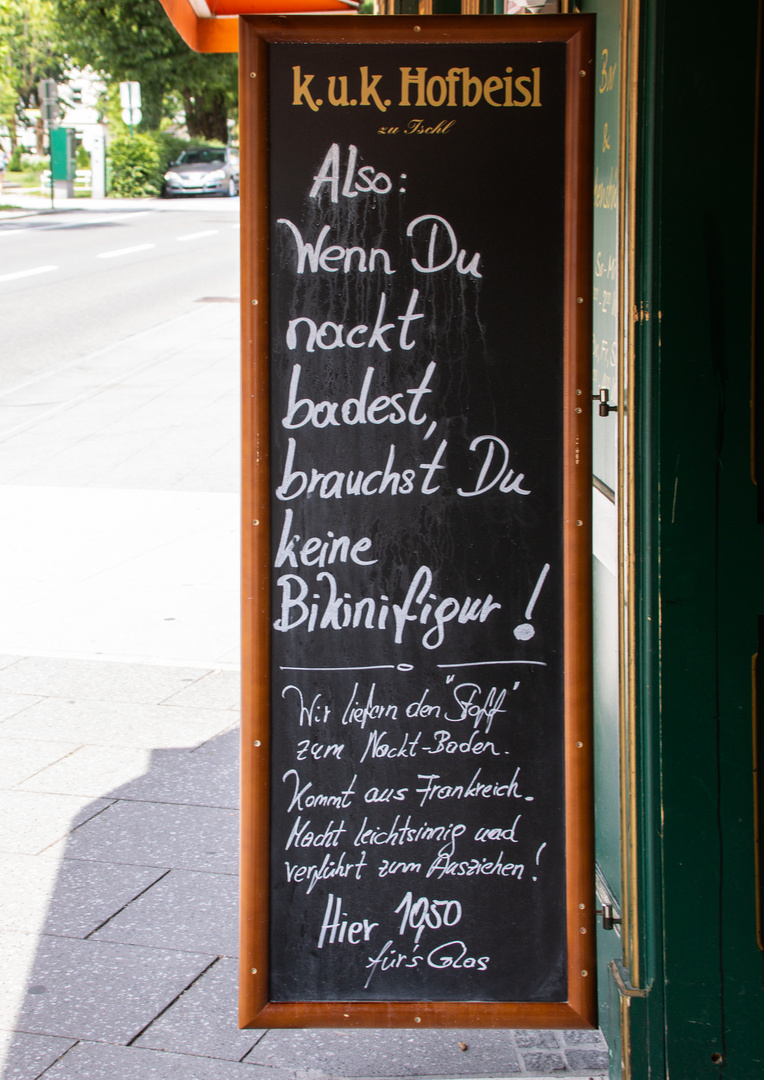 k.u.k. Hofbeisl
zu Ischl
Also:
Wenn Du
nackt
badest,
brauchst Du
keine
Bikinifigur!
Wir liefern den "Stoff"
zum Nackt-Baden.
Kommt aus Frankreich.
Macht leichtsinnig und
verführt zum Ausziehen!
Hier 10,50
für's Glas
Bar
&